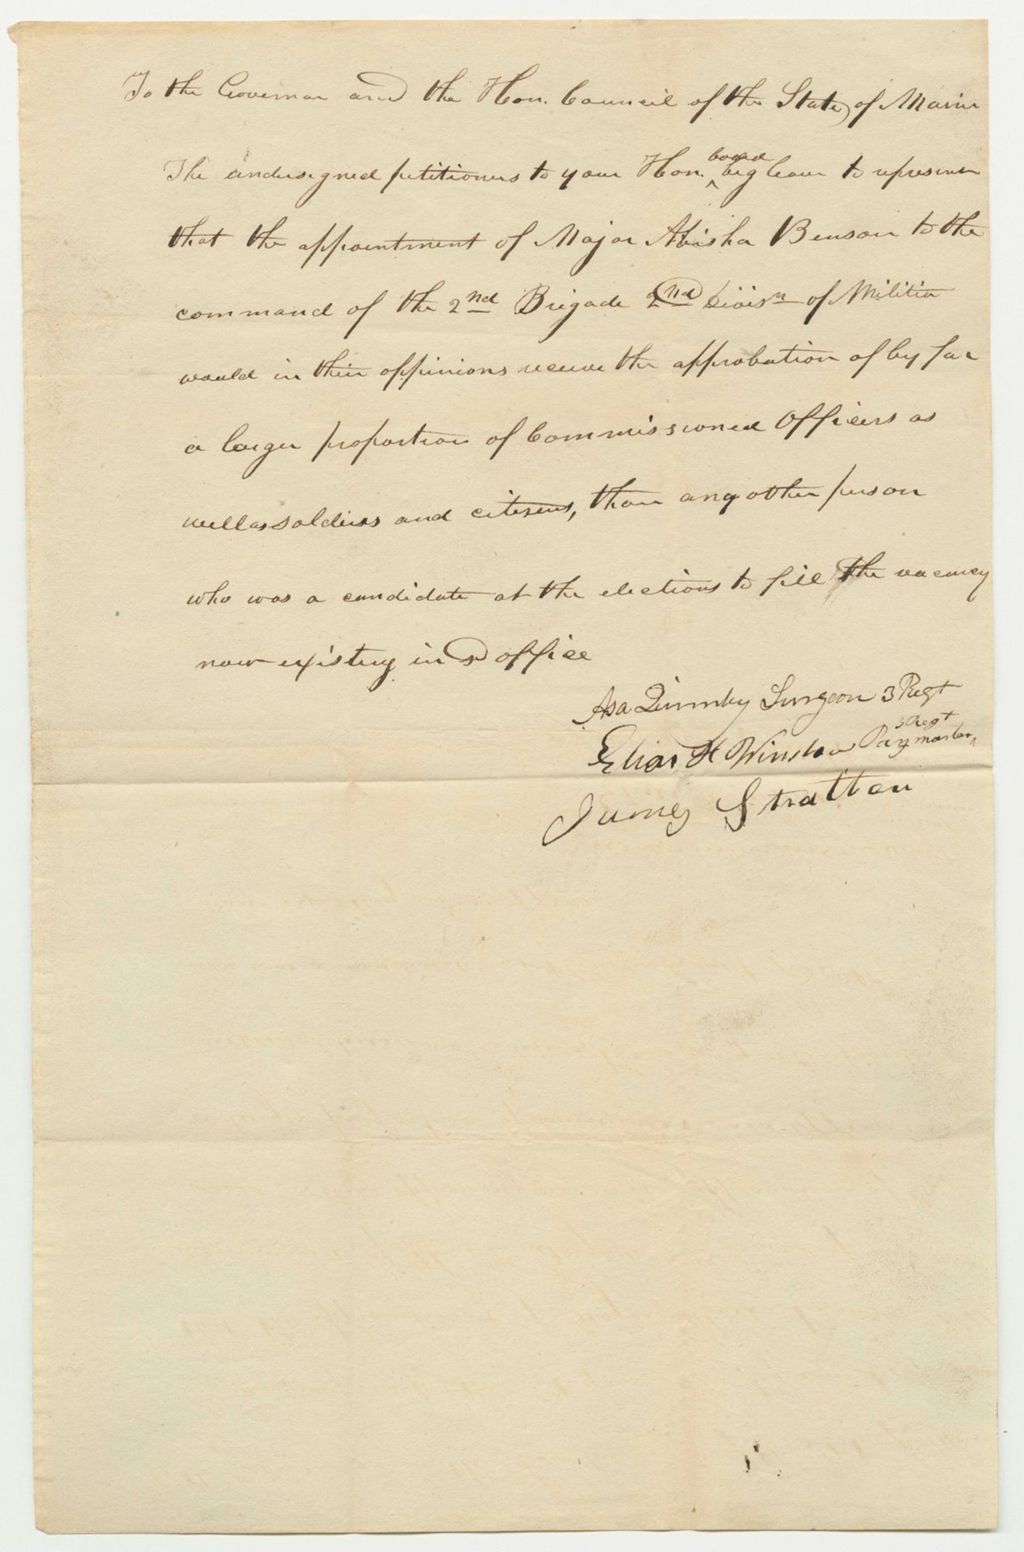 To the Governor and the Hon. Council of the State of Maine
The undersigned petitioners to your Hon. board beg leave to represent
that the appointment of Major Abisha Benson to the
command of the 2nd Brigade 2nd Divisn of Militia
would in their oppinions receive the approbation of by far
a larger proportion of Commissioned Officers as
well as soldiers and citizens, than any other person
who was a candidate at the elections to fill the vacancy
now existing in sd office
Asa Quimby Surgeon 3 Regt
Elias H Winslow Paymaster 3 Regt
James Stratton